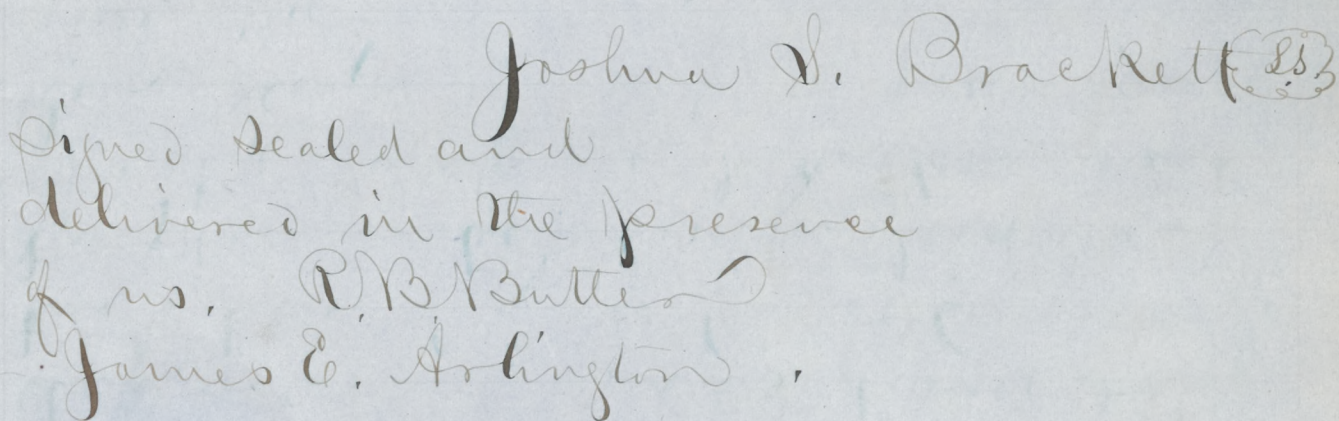 Joshua S. Brackett L.S.
Signed Sealed and
delivered in the presence
of us. R. B. Butter
James E. Arlington.